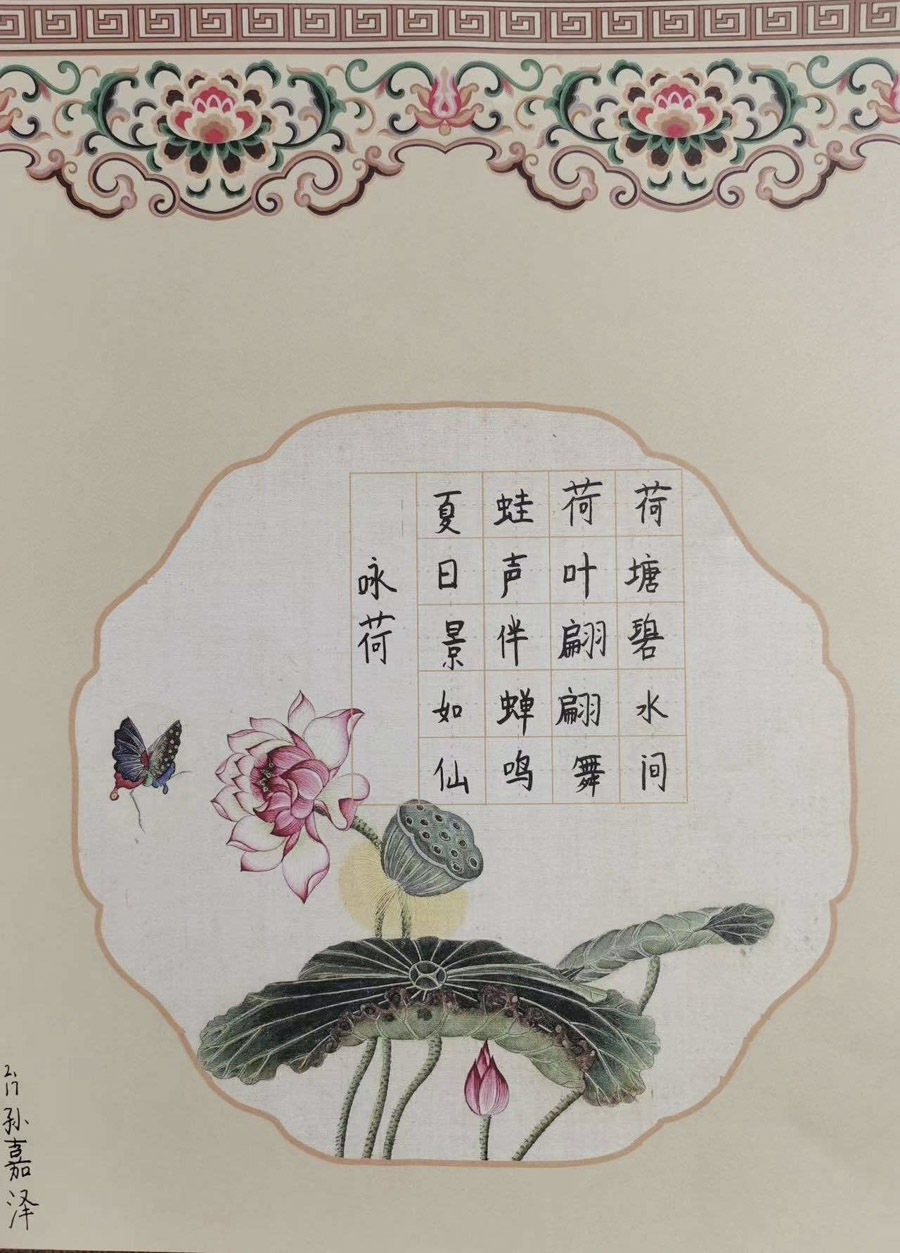 荷塘碧水间
荷叶翩翩舞
蛙声伴蝉鸣
夏日景如仙
咏荷
2.17
孙嘉泽